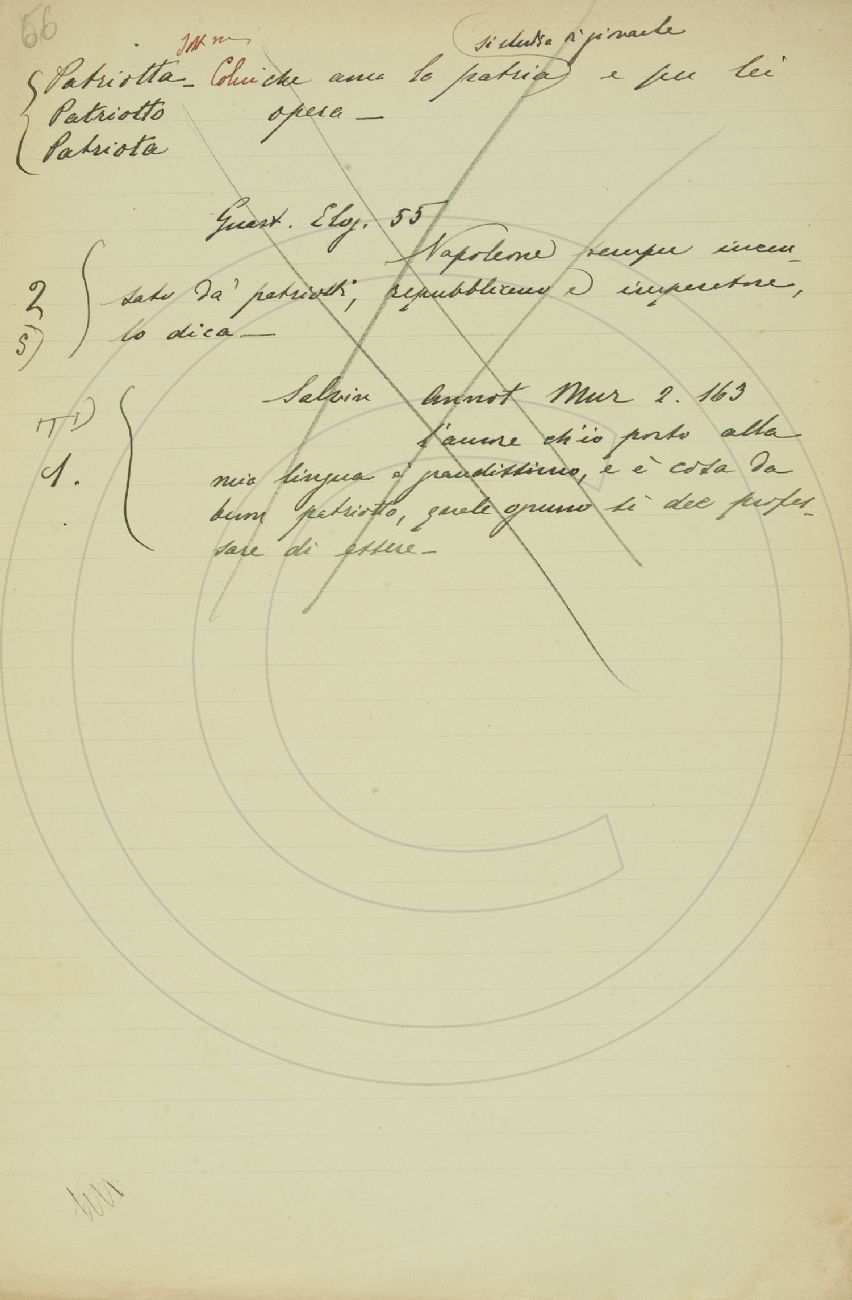 66
si studia di giovarle
Patriotta - Colui che ama la patria e per lei
Patriotto opera —
Patriota
Guast. Elog. 55
Napoleone sempre incen-
2 sato da' patriotti, repubblicano e imperatore,
5) lo dica —
Salvin Annot Mur 2. 163
l'amore ch'io porto alla
1. mia lingua è grandissimo, e è cosa da
buon patriotto, quale ognuno si dee profes-
sare di essere —